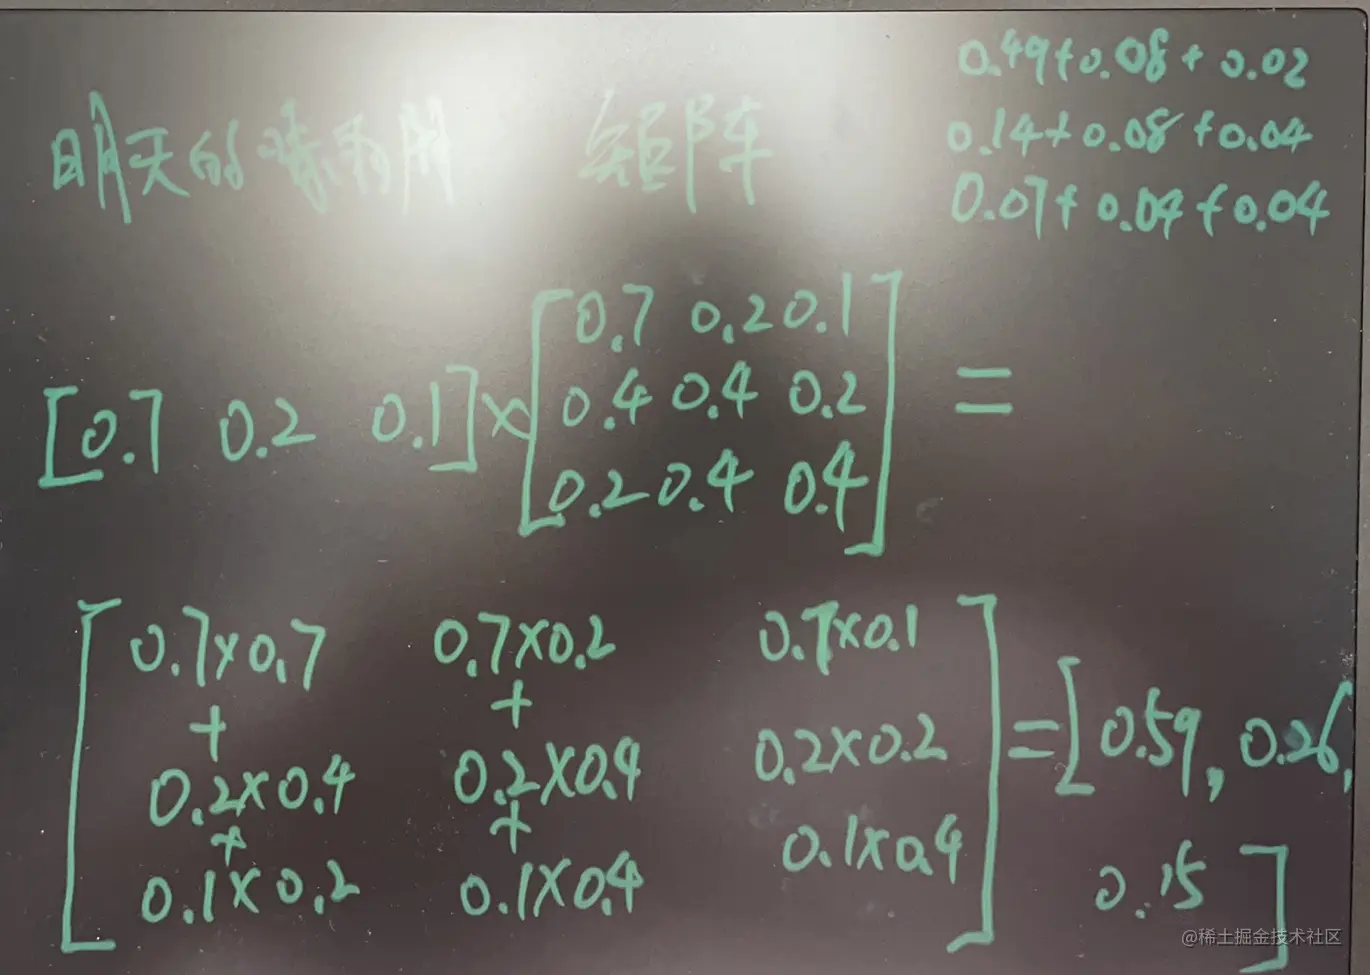 明天的晴雨阴 矩阵
0.49+0.08+0.02
0.14+0.08+0.04
0.07+0.04+0.04
[0.7 0.2 0.1]×[0.7 0.2 0.1
0.4 0.4 0.2
0.2 0.4 0.4] =
[0.7×0.7 0.7×0.2 0.7×0.1
+ +
0.2×0.4 0.2×0.4 0.2×0.2
+ +
0.1×0.2 0.1×0.4 0.1×0.4] =[0.59, 0.26,
0.15]
@稀土掘金技术社区